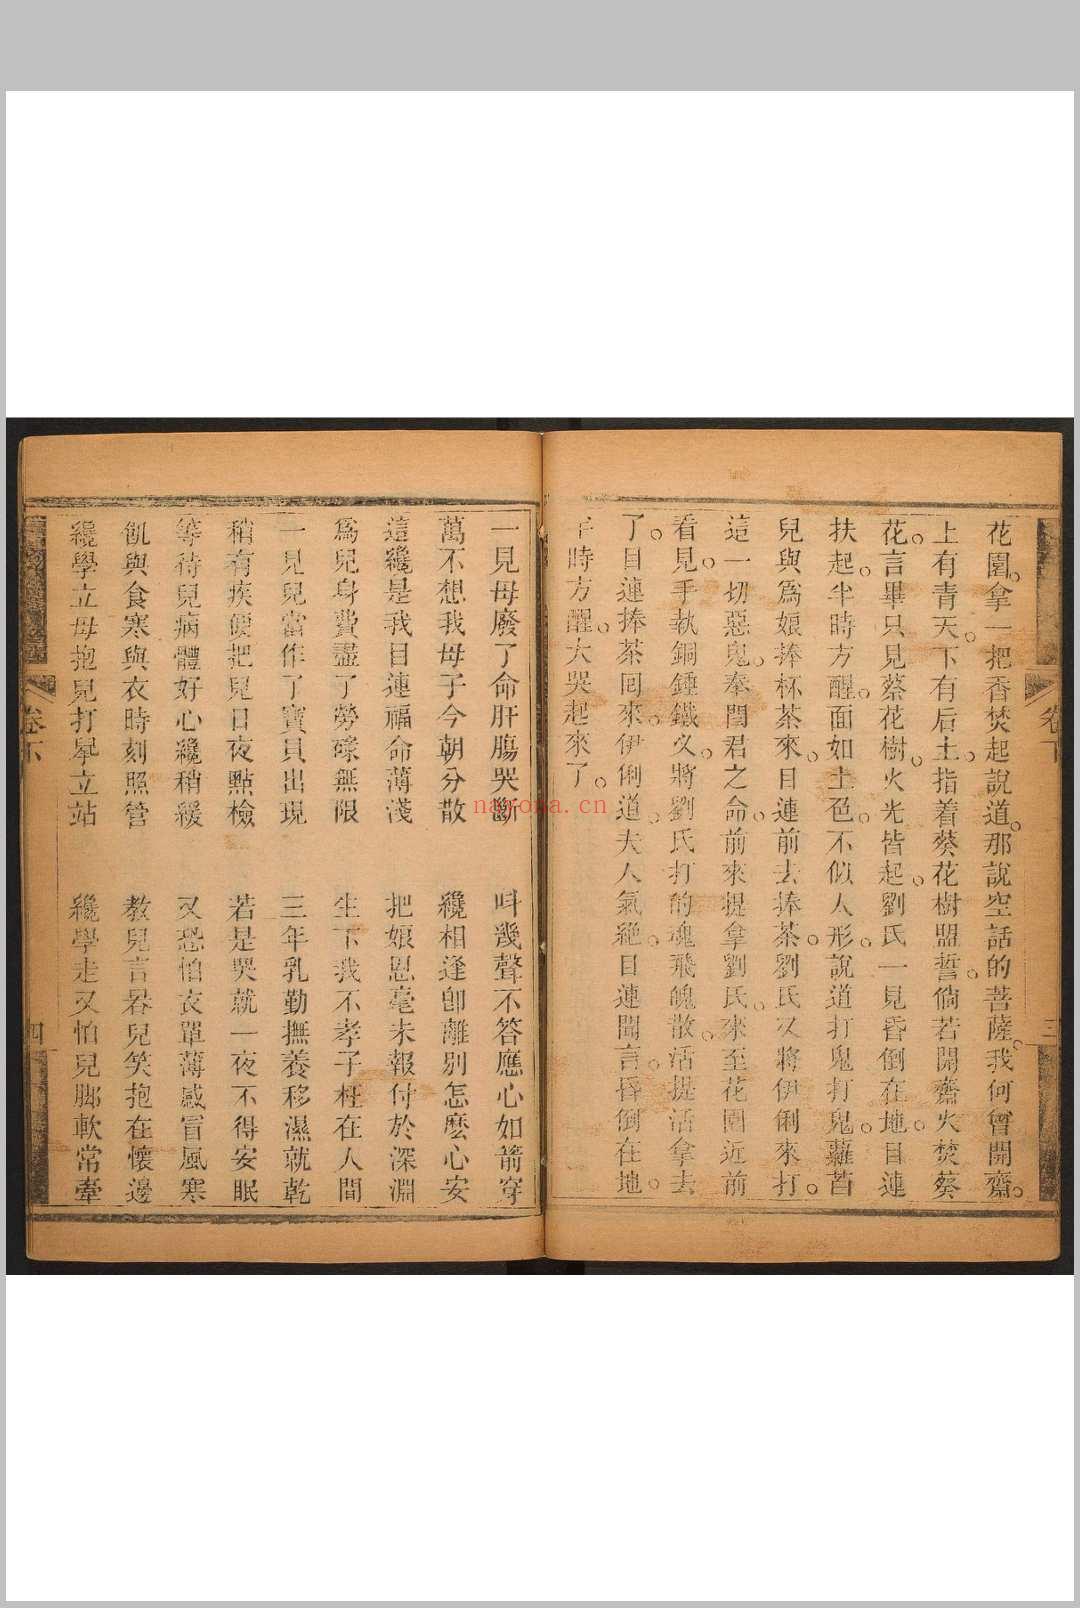 花園。拿一把香焚起說道。那說空話的菩薩。我何曾開齋。
上有青天。下有后土。指着葵花樹盟誓。倘若開齋火焚葵
花。言畢只見葵花樹。火光皆起。劉氏一見昏倒在地。目連
扶起。半時方醒。面如土色。不似人形。說道打鬼打鬼。蘿蔔
兒與爲娘捧杯茶來。目連前去捧茶。劉氏又將伊俐來打。
這一切惡鬼。奉閻君之命。前來提拿劉氏。來至花園近前
看見。手執銅錘鐵叉。將劉氏打的魂飛魄散。活提活拿去
了。目連捧茶囘來。伊俐道。夫人氣絕。目連聞言。昏倒在地。
半時方醒。大哭起來了。
一見母廢了命肝腸哭斷 呌幾聲不答應心如箭穿
萬不想我母子今朝分散 纔相逢卽離別怎麽心安
這纔是我目連福命薄淺 把娘恩毫未報付於深淵
爲兒身費盡了勞碌無限 生下我不孝子枉在人間
一見兒當作了寶貝出現 三年乳勤撫養移濕就乾
稍有疾便把兒日夜點檢 若是哭就一夜不得安眠
等待兒病體好心纔稍緩 又恐怕衣單薄感冒風寒
飢與食寒與衣時刻照管 教兒言喜兒笑抱在懷邊
纔學立母抱兒打舉立站 纔學走又怕兒脚軟常牽
卷下
三
卷下
四
nayona.cn